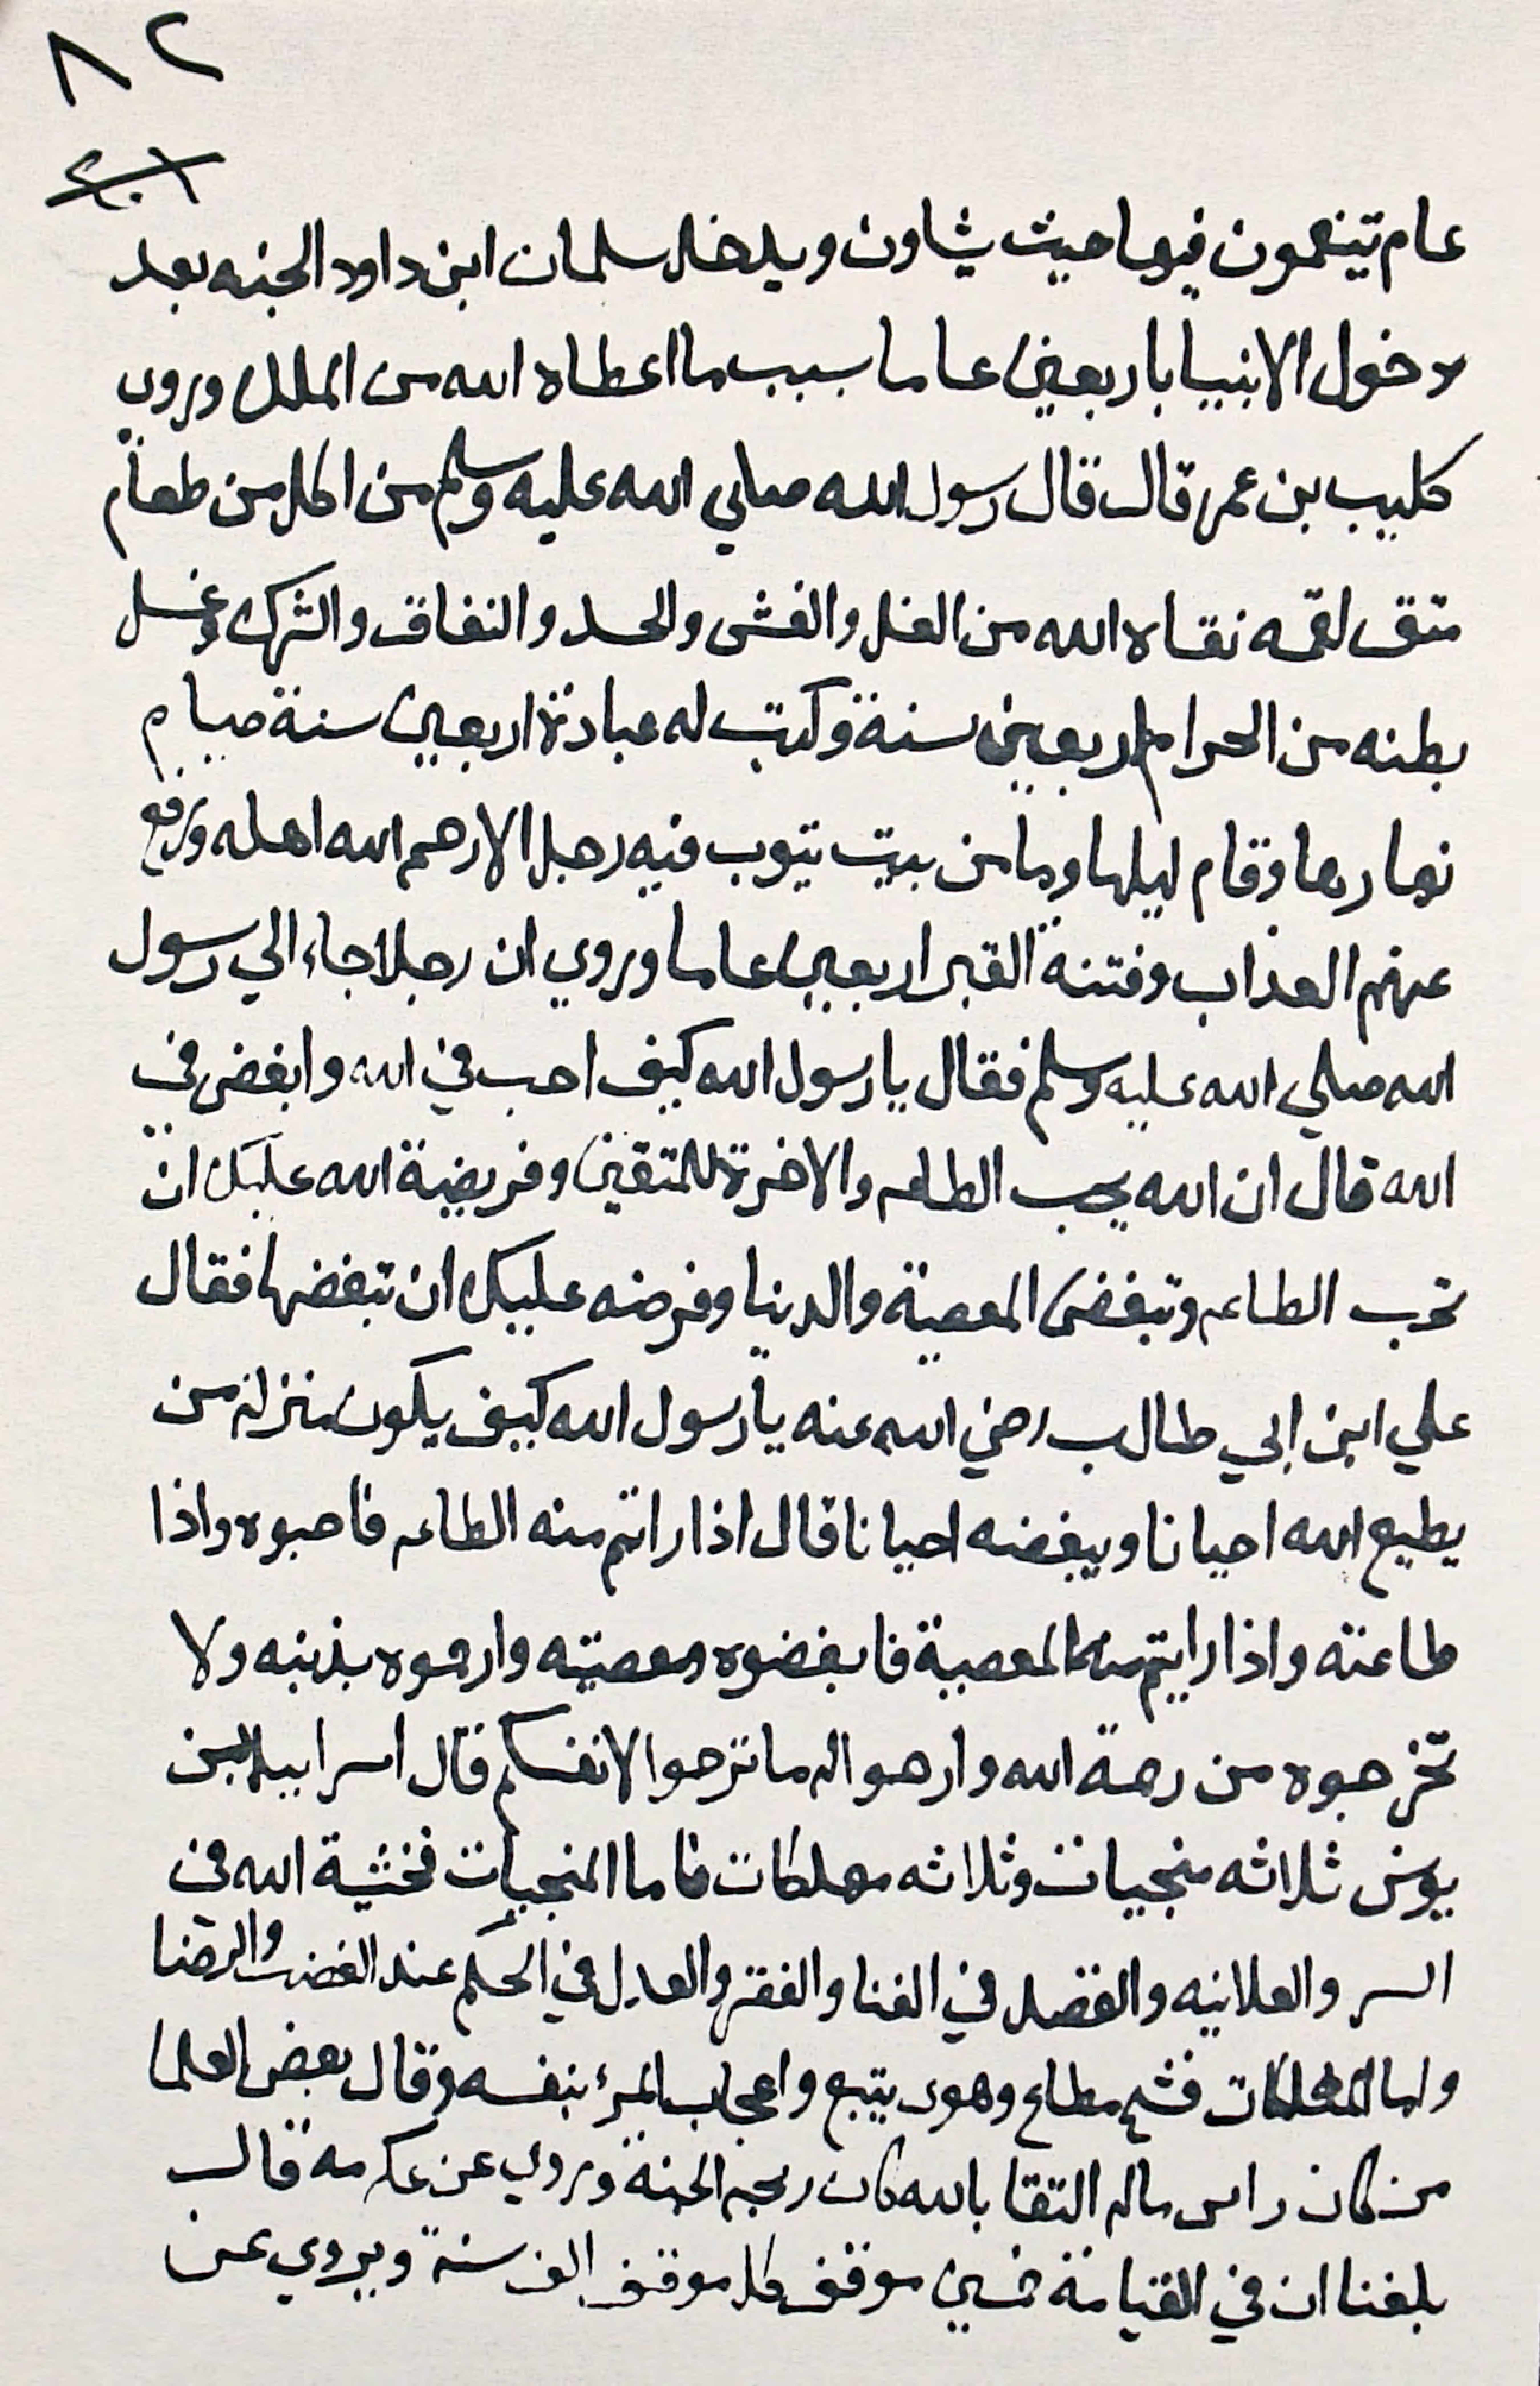 ٨٢
عام يتنعمون فيها حيث يشاون ويدخل سلمان ابن داود الجنه بعد
دخول الانبيا باربعين عاما بسبب ما اعطاه الله من الملك وروي
كليب بن عمر قال قال رسول الله صلي الله عليه وسلم من اكل من طعام
متق لقمه نقاه الله من الغل والغش والحسد والنفاق والشرك وغسل
بطنه من الحرام اربعين سنة وكتب له عبادة اربعين سنة صيام
نهارها وقام ليلها وما من بيت يتوب فيه رجل الا رحم الله اهله ورفع
عنهم العذاب وفتنة القبر اربعين عاما وروي ان رجلا جاء الي رسول
الله صلي الله عليه وسلم فقال يا رسول الله كيف احب في الله وابغض في
الله قال ان الله يحب الطاعه والاخرة للمتقين وفريضة الله عليك ان
تحب الطاعه وتبغض المعصية والدنيا وفرضه عليك ان تبغضها فقال
علي ابن ابي طالب رضي الله عنه يا رسول الله كيف يكون منزله من
يطيع الله احيانا ويبغضه احيانا قال اذا راتم منه الطاعه فاحبوه واذا
طاعته واذا رايتم منه المعصية فابغضوه ومعصيته وارحموه بذنبه ولا
تخرجوه من رحمة الله وارجوا له ما ترجوا لانفسكم قال اسراييل بن
يونس ثلاثه منجيات وثلاثه مهلكات فاما المنجيات فخشية الله في
السر والعلانيه والقصد في الغنا والفقر والعدل في الحكم عند الغضب والرضا
واما المهلكات فشح مطاع وهوي يتبع واعجاب المرئ بنفسه وقال بعض العلما
من كان راس ماله التقا بالله كان ربحه الجنة وروي عن عكرمه قال
بلغنا ان في القيامة خمسين موقف كل موقف الف سنة ويروي عن